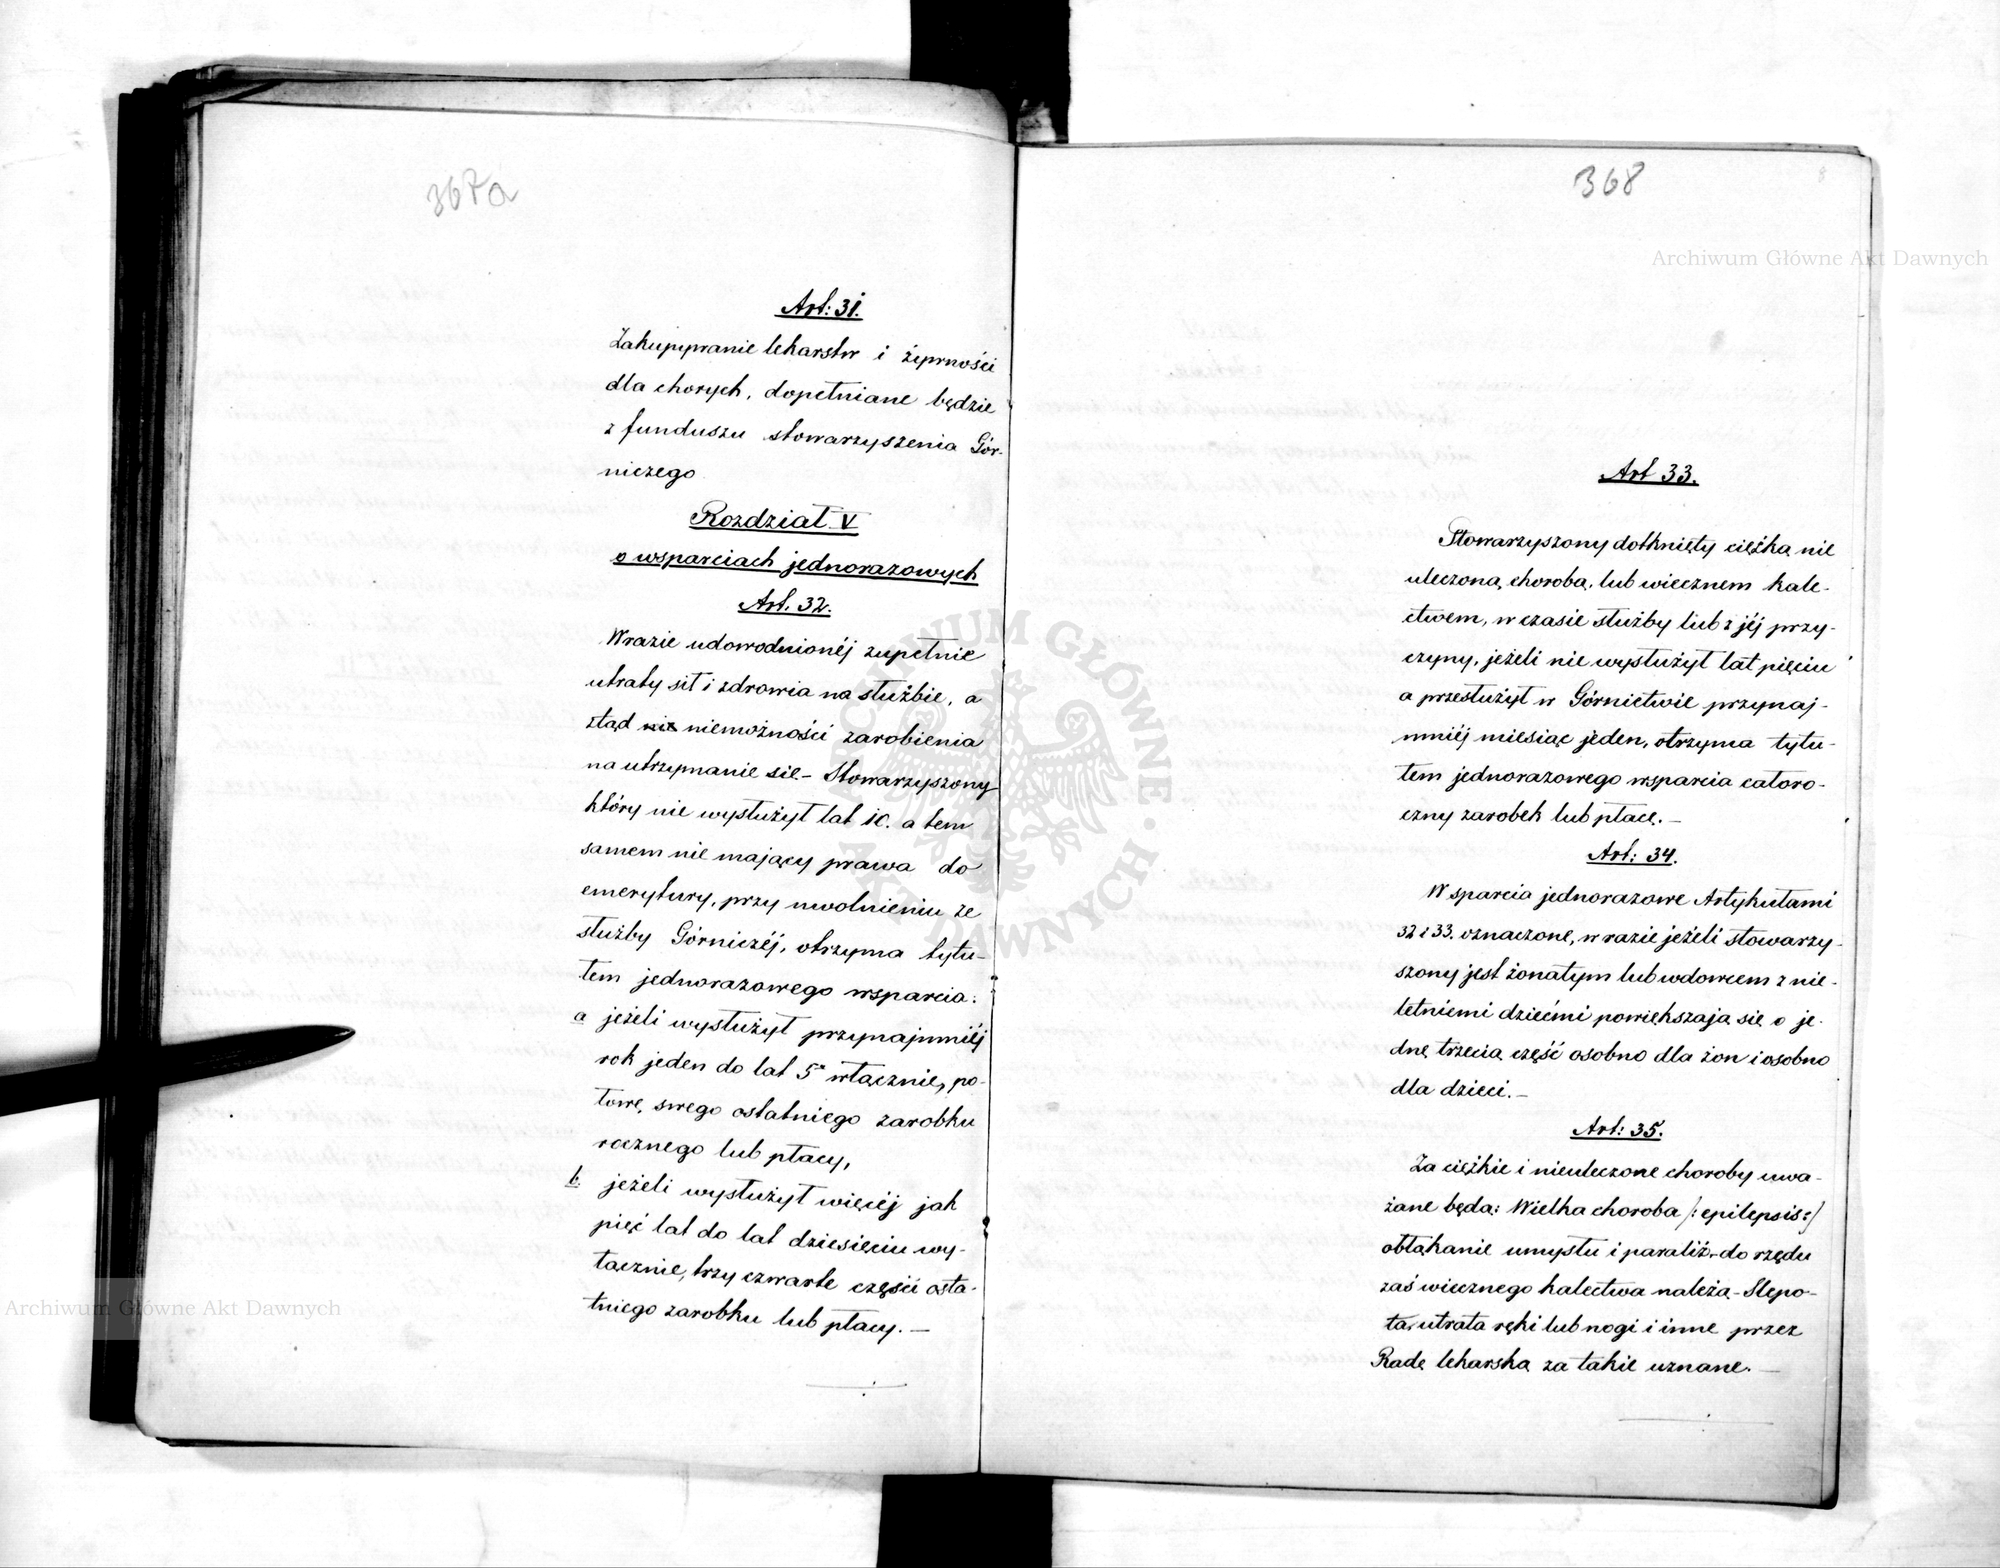 367a
Art: 31.
Zakupywanie lekarstw i żywności
dla chorych, dopełniane będzie
z funduszu stowarzyszenia Gór-
niczego
Rozdział V
o wsparciach jednorazowych
Art. 32.
W razie udowodnionéj zupełnie
utraty sił i zdrowia na służbie, a
ztąd nie niemożności zarobienia
na utrzymanie się – Stowarzyszony
który nie wysłużył lat 10. a tem
samem nie mający prawa do
emerytury, przy uwolnieniu ze
służby Górniczéj, otrzyma tytu-
łem jednorazowego wsparcia:
a jeżeli wysłużył przynajmniéj
rok jeden do lat 5 włącznie, po-
łowę swego ostatniego zarobku
rocznego lub płacy,
b. jeżeli wysłużył więcéj jak
pięć lat do lat dziesięciu wy-
łącznie, trzy czwarte części osta-
tniego zarobku lub płacy. –
368
8
Art 33.
Stowarzyszony dotknięty ciężką nie
uleczoną chorobą, lub wiecznem kale-
ctwem, w czasie służby lub z jéj przy-
czyny, jeżeli nie wysłużył lat pięciu
a przesłużył w Górnictwie przynaj-
mniéj miesiąc jeden, otrzyma tytu-
łem jednorazowego wsparcia całoro-
czny zarobek lub płacę. –
Art: 34.
Wsparcia jednorazowe Artykułami
32 i 33. oznaczone, w razie jeżeli stowarzy-
szony jest żonatym lub wdowcem z nie-
letniemi dziećmi powiększają się o je-
dnę trzecią część osobno dla żon i osobno
dla dzieci. –
Art: 35.
Za ciężkie i nieuleczone choroby uwa-
żane będą: Wielka choroba /: epilepsis :/
obłąkanie umysłu i paraliż – do rzędu
zaś wiecznego kalectwa należą – Ślepo-
ta, utrata ręki lub nogi i inne przez
Radę lekarską za takie uznane. –
Archiwum Główne Akt Dawnych
Archiwum Główne Akt Dawnych
ARCHIWUM GŁÓWNE · AKT DAWNYCH ·